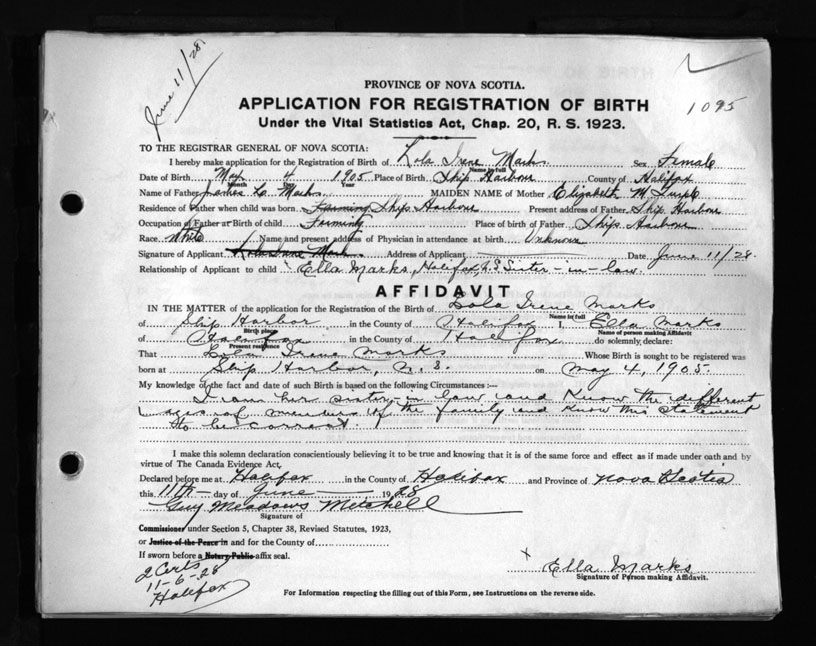 June 11/28
PROVINCE OF NOVA SCOTIA.
APPLICATION FOR REGISTRATION OF BIRTH
1095
Under the Vital Statistics Act, Chap. 20, R. S. 1923.
TO THE REGISTRAR GENERAL OF NOVA SCOTIA:
I hereby make application for the Registration of Birth of Lola Irene Marks Sex Female
Name in full
Date of Birth May 4 1905 Place of Birth Ship Harbour County of Halifax
Month Day Year
Name of Father James L. Marks MAIDEN NAME of Mother Elizabeth M
Residence of Father when child was born Farming Ship Harbour Present address of Father Ship Harbour
Occupation of Father at Birth of child Farming Place of birth of Father Ship Harbour
Race White Name and present address of Physician in attendance at birth Unknown
Signature of Applicant Lola Irene Marks Address of Applicant Date June 11/28
Relationship of Applicant to child Ella Marks, Halifax N.S Sister-in-law
AFFIDAVIT
IN THE MATTER of the application for the Registration of the Birth of Lola Irene Marks
Name in full
of Ship Harbor in the County of Halifax I, Ella Marks
Birth place Name of person making Affidavit
of Halifax in the County of Halifax do solemnly, declare:
Present residence
That Lola Irene Marks Whose Birth is sought to be registered was
born at Ship Harbor, N. S. on May 4, 1905.
My knowledge of the fact and date of such Birth is based on the following Circumstances :—
I am her sister-in law and know the different
ages of members of the family and know this statement
to be correct.
I make this solemn declaration conscientiously believing it to be true and knowing that it is of the same force and effect as if made under oath and by
virtue of The Canada Evidence Act,
Declared before me at Halifax in the County of Halifax and Province of Nova Scotia
this 11th day of June 1928
Guy Meadows Mitchell
Signature of
Commissioner under Section 5, Chapter 38, Revised Statutes, 1923,
or Justice of the Peace in and for the County of
If sworn before a Notary Public affix seal.
2 Certs
11-6-28
Halifax
X Ella Marks
Signature of Person making Affidavit.
For Information respecting the filling out of this Form, see Instructions on the reverse side.